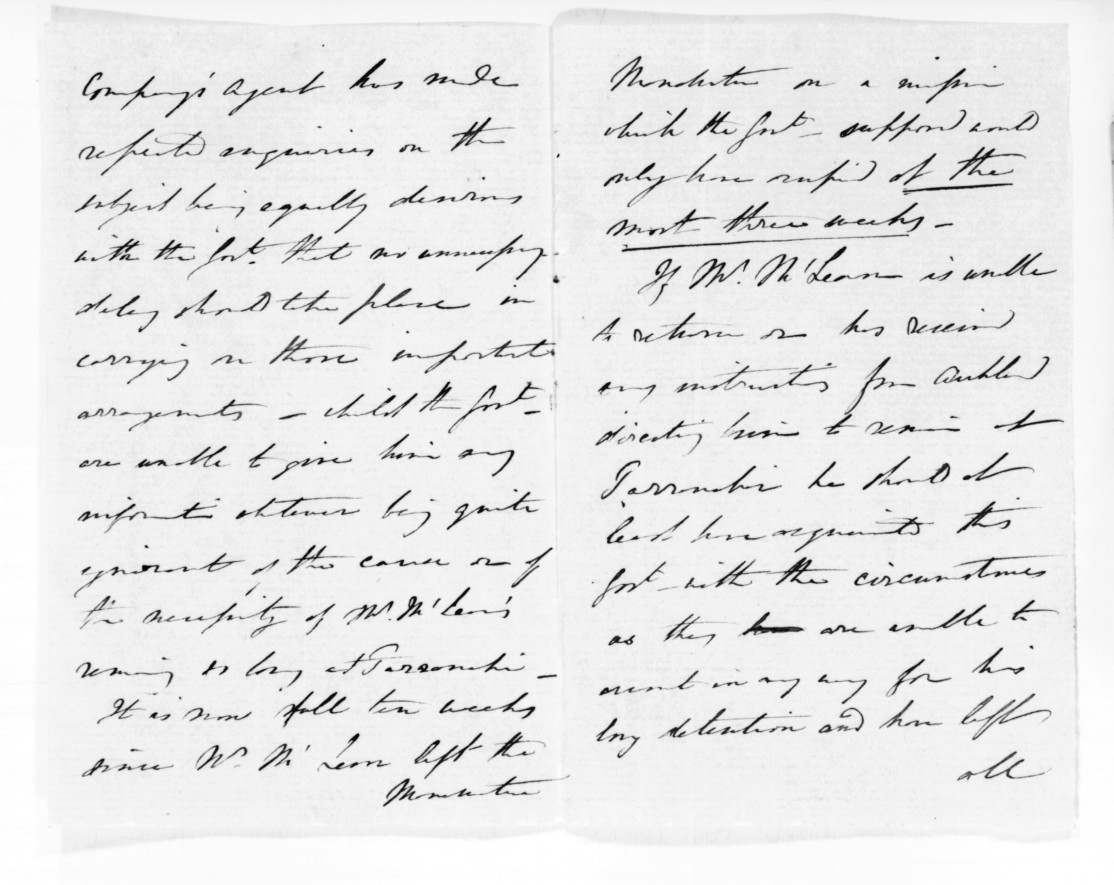 Company's Agent has made
repeated enquiries on the
subject being equally desirous
with the Govt. that no unnecessary
delay should take place in
carrying on those important
arrangements – whilst the Govt –
are unable to give him any
information whatever being quite
ignorant of the cause or of
the necessity of Mr. McLean's
remaining so long at Tarranaki –
It is now full ten weeks
since Mr. McLean left the
Manawatu
Manawatu on a mission
which the Govt – supposed would
only have occupied at the
most three weeks –
If Mr. McLean is unable
to return or has received
any instructions from Auckland
directing him to remain at
Tarranaki he should at
least have acquainted this
Govt – with the circumstances
as they are unable to
account in any way for his
long detention and have left
all